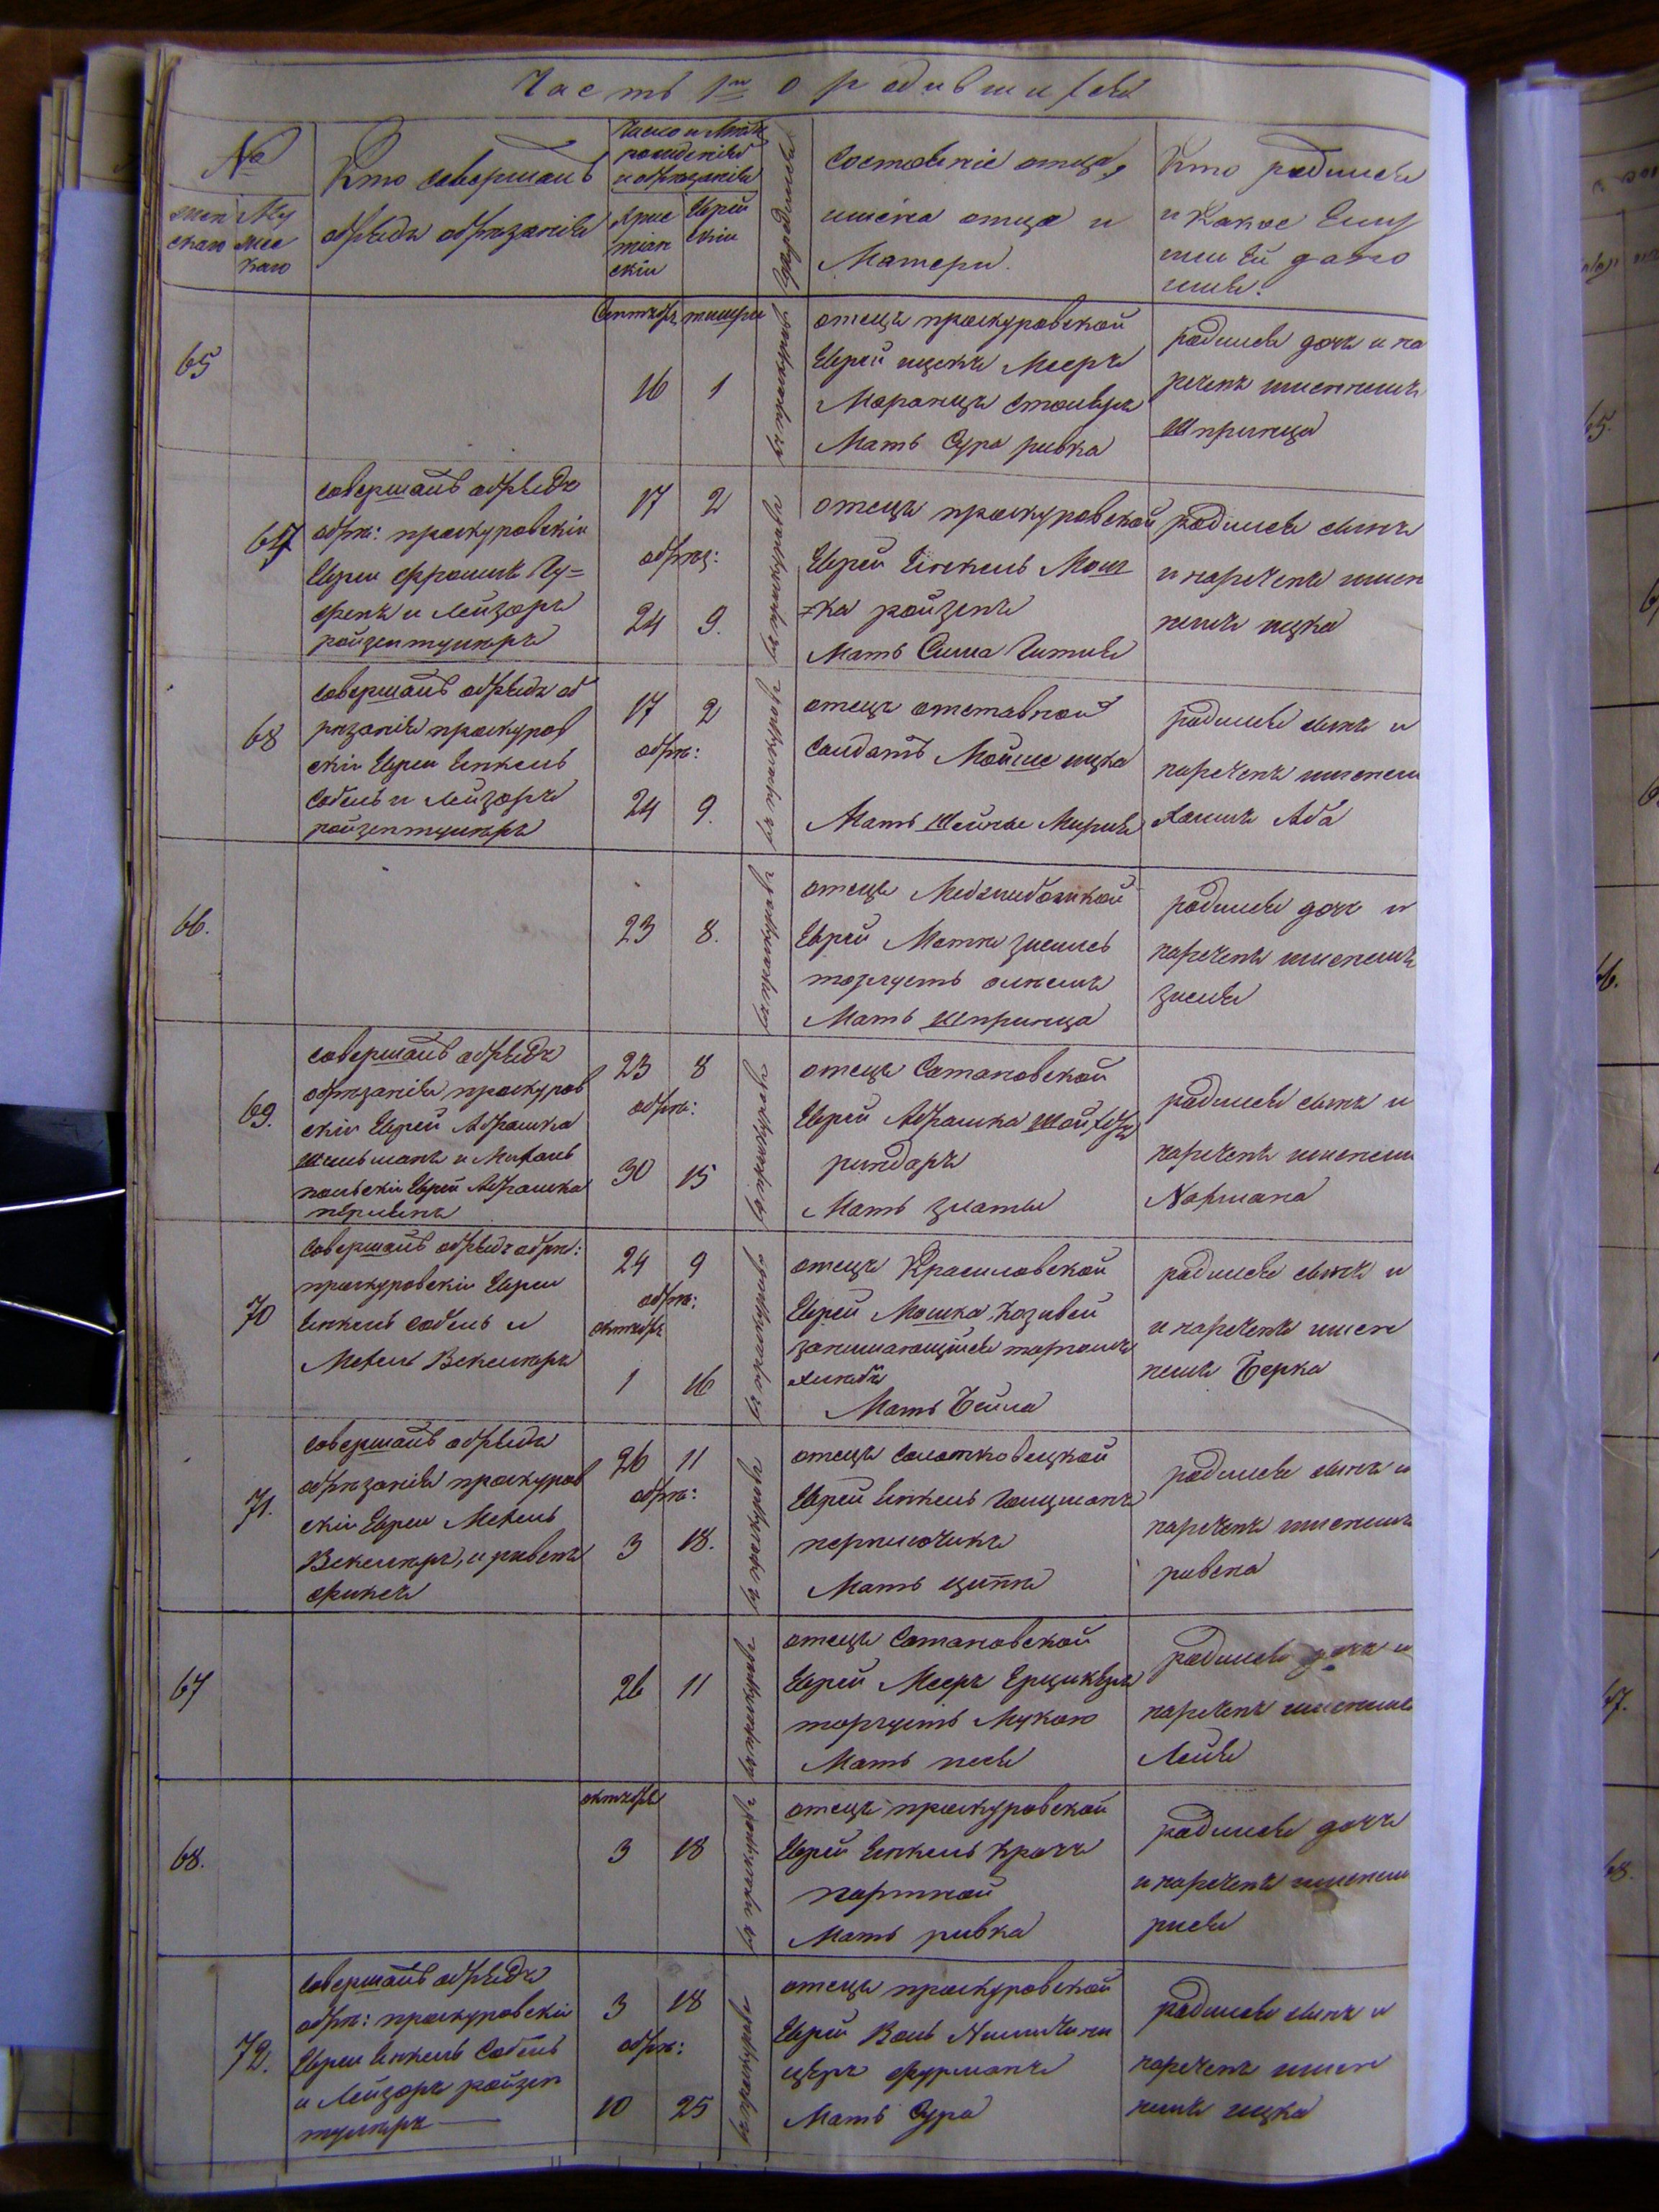 Часть 1я о родившихся
№
жен
скаго
Му
жес
каго
Кто совершалъ
обрядъ обрезанія
Число и Месяц
рожденія
и обрезанія
Хрис
тіан
скій
Еврей
скій
где родился
Состояніе отца,
имена отца и
Матери.
Кто родился
и какое Ему
или Ей дано
имя.
65
Сентябрь тишри
16 1
въ проскурове
отецъ проскуровской
Еврей ицекъ Мееръ
Маранцъ столяръ
Мать Сура ривка
родилась дочь и на
речена именемъ
Шпринца
67
совершалъ обрядъ
обрез: проскуровскій
Евреи Фроимъ Гу=
фенъ и Лейзоръ
ройзентуллеръ
17 2
обрез:
24 9.
въ проскурове
отецъ проскуровской
Еврей Янкель Мош
=ка ройзенъ
Мать Сима Гитля
родился сынъ
и нареченъ имен
немъ ицка
68
совершалъ обрядъ об
резанія проскуров
скій Евреи Янкель
Собель и Лейзоръ
ройзентуллеръ
17 2
обрез:
24 9.
въ проскурове
отецъ отставной
Солдатъ Мойше ицка
Мать Шейнье Миріамъ
родился сынъ и
нареченъ именем
Хаимъ Аба
66.
23 8.
въ проскурове
отецъ Меджибожской
Еврей Мотя зисись
торгуетъ олнемъ
Мать шпринца
родилась дочь и
наречена именемъ
зисля
69.
совершалъ обрядъ
обрезанія проскуров
скій Еврей Абрашка
Шельманъ и Михаль
польскій Еврей Абрашка
перлинъ
23 8
обрез:
30 15
въ проскурове
отецъ Сатановской
Еврей Абрашка
риндаръ
Мать златы
родился сынъ и
нареченъ именем
Нахмана
70
совершалъ обрядъ обрез:
проскуровскій Евреи
Янкель собель и
Мехель Векслеръ
24 9
обрез:
октябрь
1 16
въ проскурове
отецъ Красиловской
Еврей Мошка Казивей
занимающійся торгомъ
хлеба
Мать Бейла
родился сынъ и
и нареченъ имен
немъ Берка
71.
совершалъ обрядъ
обрезанія проскуров
скій Евреи Мехель
Векслеръ, и рывенъ
Фиксъ
26 11
обрез:
3 18.
въ проскурове
отецъ Солотковецкой
Еврей Янкель Гольцманъ
Мать ципа
родился сынъ и
нареченъ именемъ
ривена
67
26 11
въ проскурове
отецъ Сатановской
Еврей Мееръ
торгуетъ Мукою
Мать песя
родилась дочь и
наречена именемъ
Лейя
68.
октябрь
3 18
въ проскурове
отецъ проскуровской
Еврей Янкель Крачъ
партной
Мать ривка
родилась дочь
и наречена именем
рися
72.
совершалъ обрядъ
обрез: проскуровскій
Евреи Янкель Собель
и Лейзоръ ройзен
туллеръ
3 18
обрез:
10 25
въ проскурове
отецъ проскуровской
Еврей Воль
Фурманъ
Мать Сура
родился сынъ и
нареченъ имен
немъ ицка